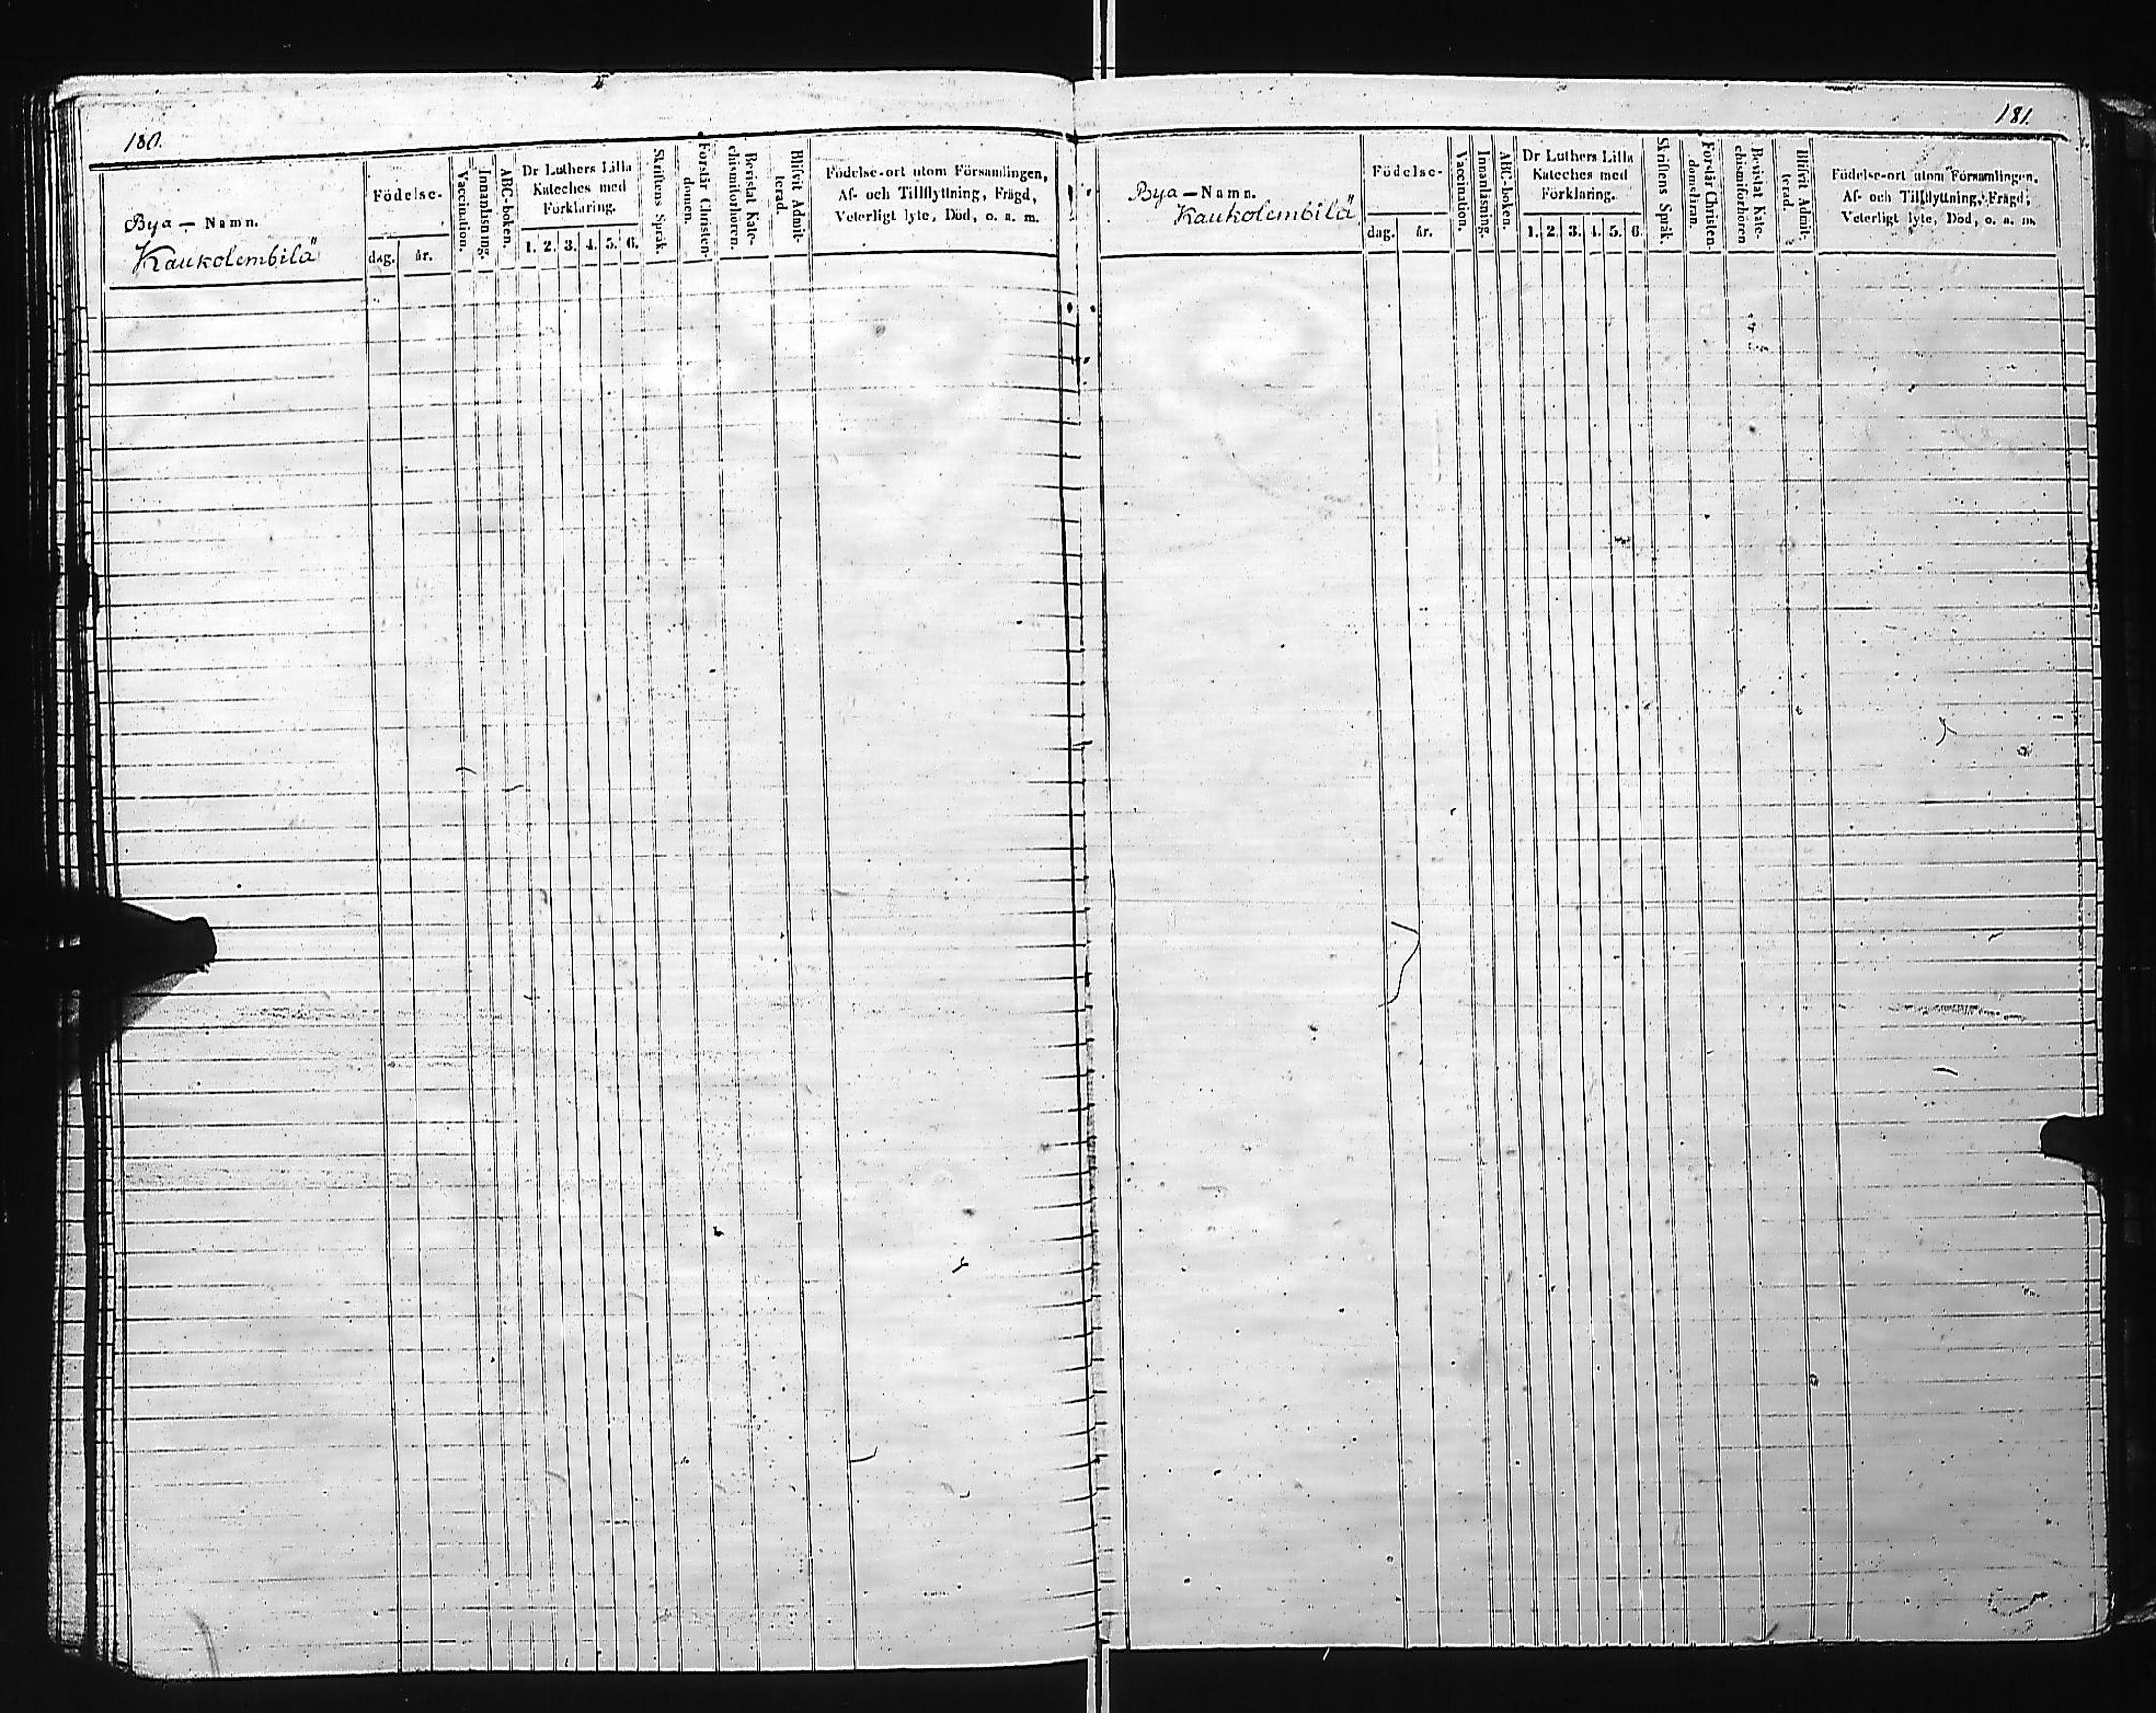 180.
Bya — Namn.
Kaukolembilä
Födelse-
dag. år.
Vaccination.
Innanläsning.
ABC-boken.
Dr Luthers Lilla
Kateches med
Förklaring.
1. 2. 3. 4. 5. 6.
Skriftens Språk.
Förstår Christen-
domen.
Bevistat Kate-
chismiförhören.
Blifvit Admit-
terad.
Födelse-ort utom Församlingen,
Af- och Tillflyttning, Frägd,
Veterligt lyte, Död, o. a. m.
181.
Bya — Namn.
Kaukolembilä
Födelse-
dag. år.
Vaccination.
Innanläsning.
ABC-boken.
Dr Luthers Lilla
Kateches med
Förklaring.
1. 2. 3. 4. 5. 6.
Skriftens Språk.
Förstår Christen-
domsläran.
Bevistat Kate-
chismiförhören
Blifvit Admit-
terad.
Födelse-ort utom Församlingen,
Af- och Tillflyttning, Frägd,
Veterligt lyte, Död, o. a. m.